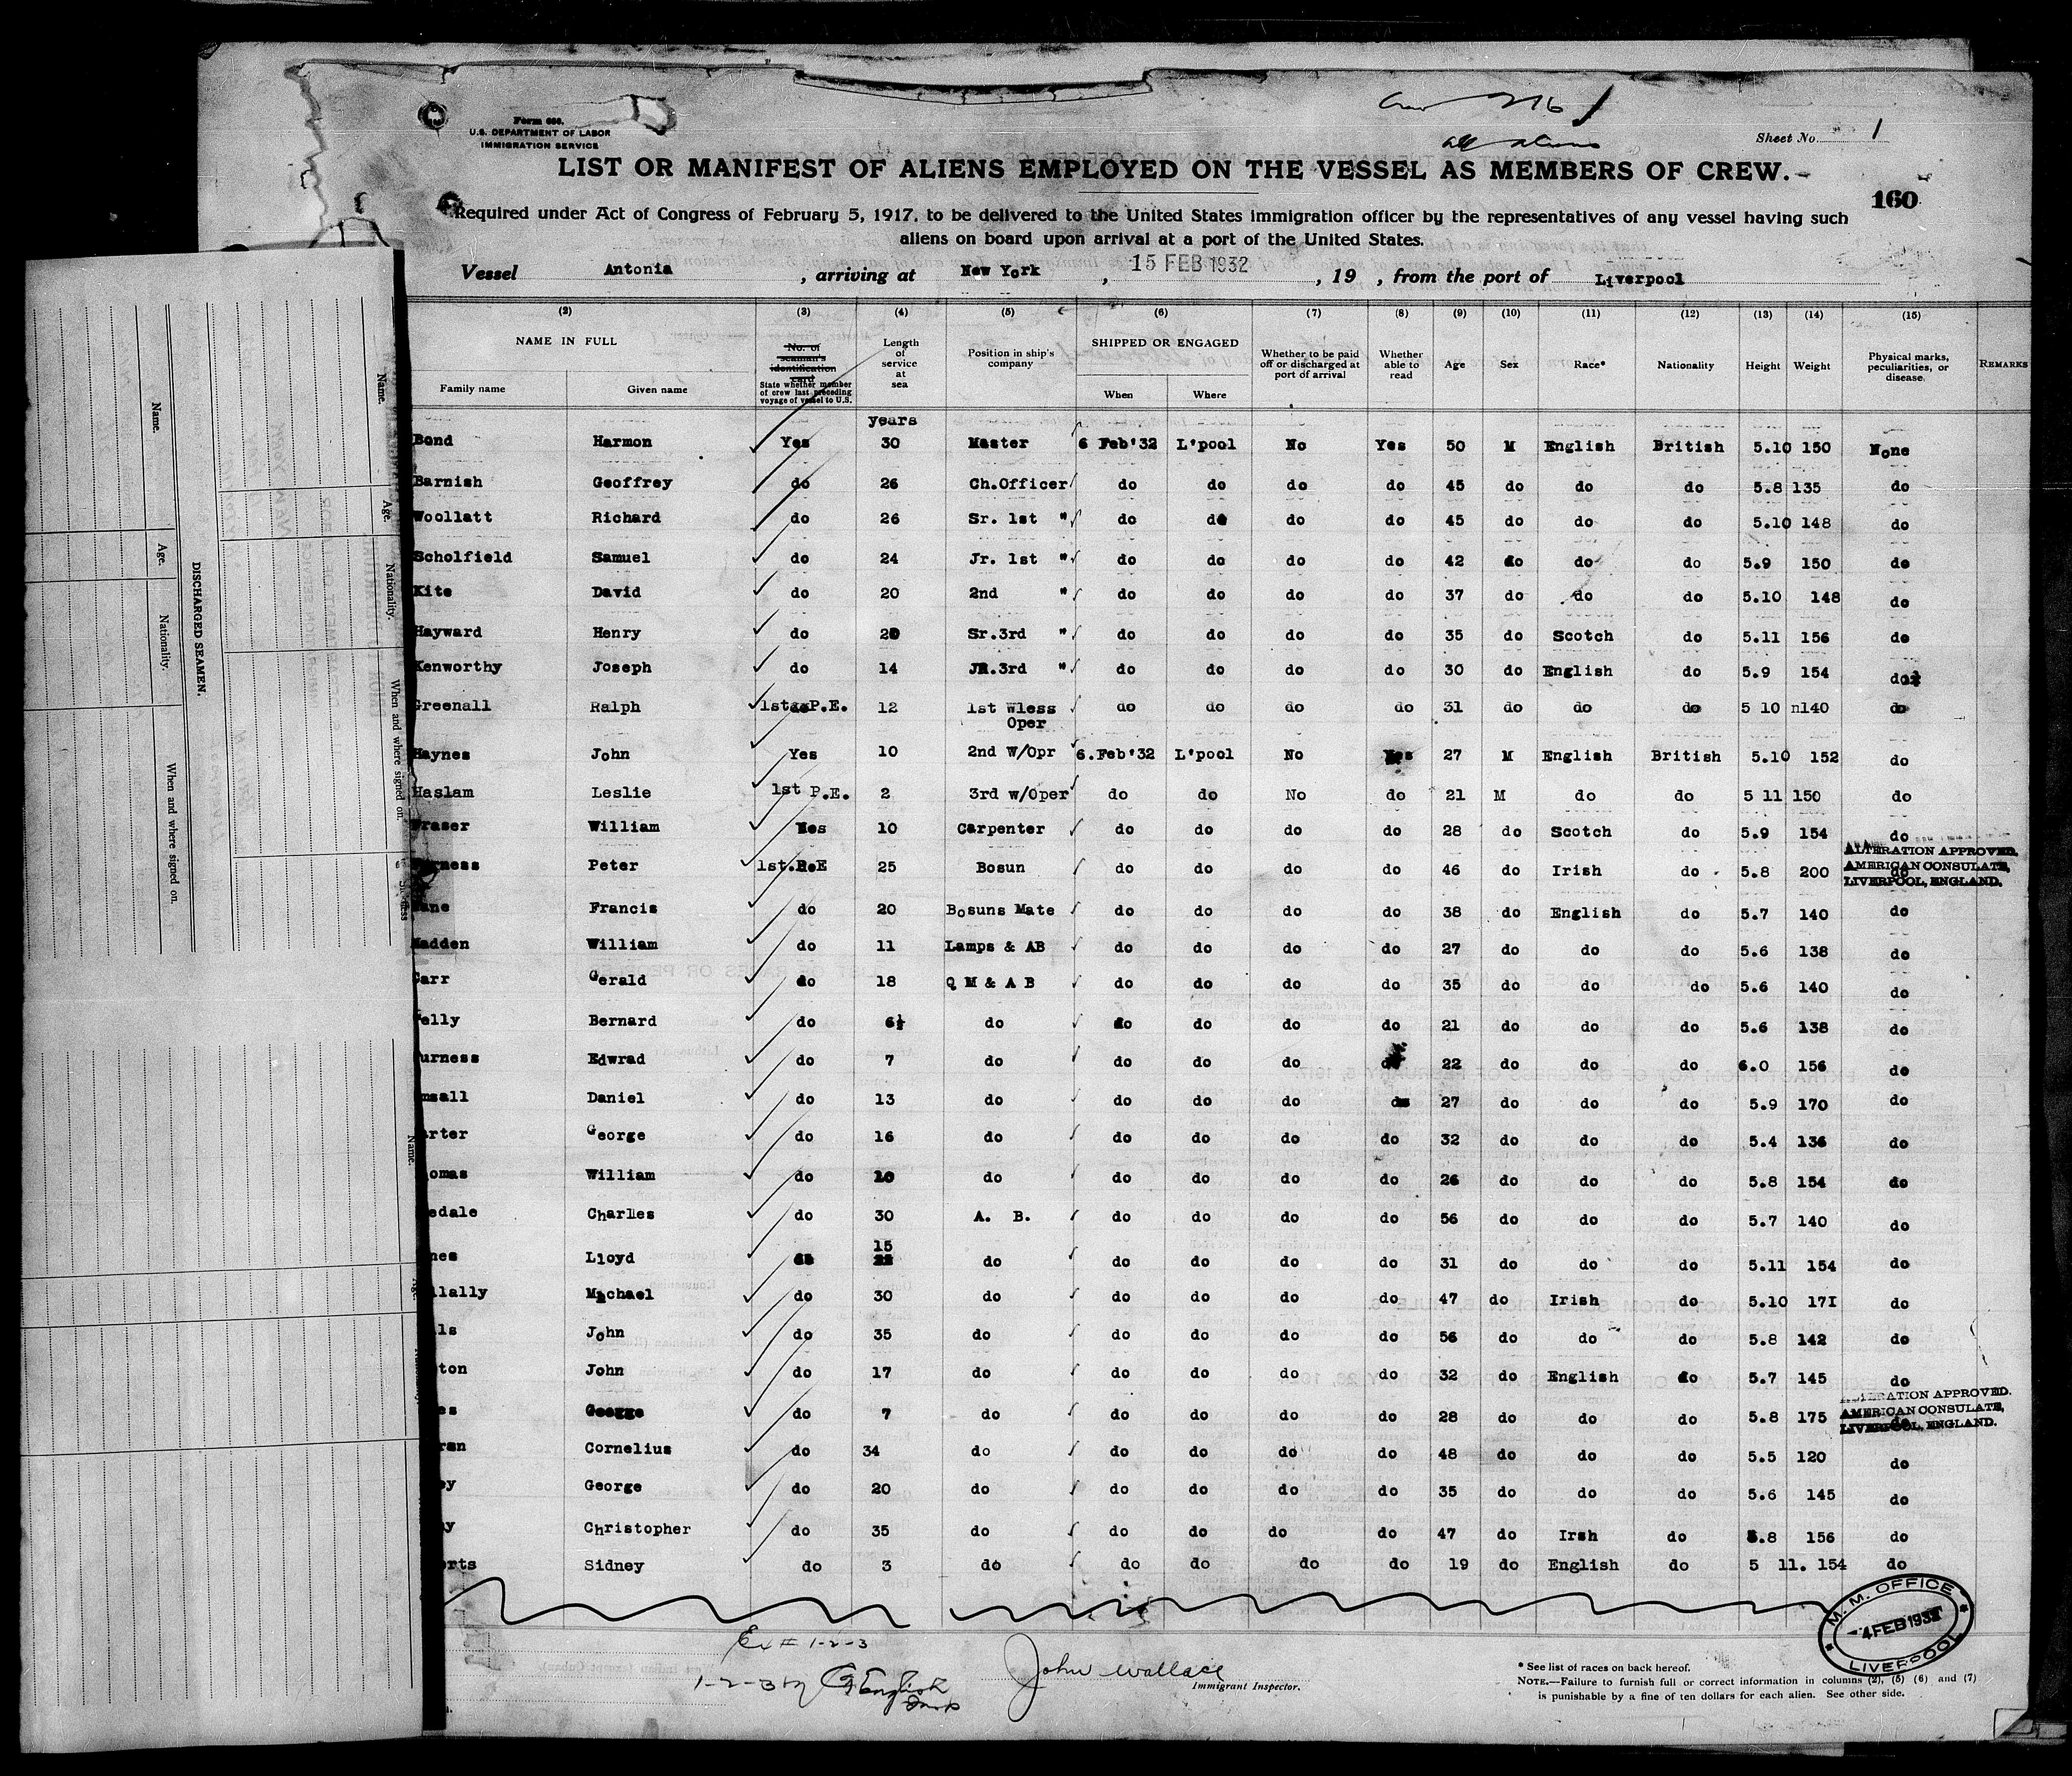 Form 680.
U.S. DEPARTMENT OF LABOR
IMMIGRATION SERVICE
all aliens
Sheet No. 1
LIST OR MANIFEST OF ALIENS EMPLOYED ON THE VESSEL AS MEMBERS OF CREW.
160
Required under Act of Congress of February 5, 1917, to be delivered to the United States immigration officer by the representatives of any vessel having such
aliens on board upon arrival at a port of the United States.
Vessel Antonia , arriving at New York , 15 FEB 1932 , 19 , from the port of Liverpool
(2) (3) (4) (5) (6) (7) (8) (9) (10) (11) (12) (13) (14) (15)
NAME IN FULL
Family name Given name
No. of seaman's identification card
State whether member of crew last preceding voyage of vessel to U.S.
Length of service at sea
Position in ship's company
SHIPPED OR ENGAGED
When Where
Whether to be paid off or discharged at port of arrival
Whether able to read
Age Sex Race* Nationality Height Weight
Physical marks, peculiarities, or disease.
REMARKS
years
Bond Harmon Yes 30 Master 6 Feb'32 L'pool No Yes 50 M English British 5.10 150 None
Barnish Geoffrey do 26 Ch.Officer do do do do 45 do do do 5.8 135 do
Woollatt Richard do 26 Sr. 1st " do do do do 45 do do do 5.10 148 do
Scholfield Samuel do 24 Jr. 1st " do do do do 42 do do do 5.9 150 do
Kite David do 20 2nd " do do do do 37 do do do 5.10 148 do
Hayward Henry do 20 Sr.3rd " do do do do 35 do Scotch do 5.11 156 do
Kenworthy Joseph do 14 JR.3rd " do do do do 30 do English do 5.9 154 do
Greenall Ralph 1st P.E. 12 1st Wless Oper do do do do 31 do do do 5 10 140 do
Haynes John Yes 10 2nd W/Opr 6.Feb'32 L'pool No Yes 27 M English British 5.10 152 do
Haslam Leslie 1st P.E. 2 3rd w/Oper do do No do 21 M do do 5 11 150 do
Fraser William Yes 10 Carpenter do do do do 28 do Scotch do 5.9 154 do
Peter 1st. 25 Bosun do do do do 46 do Irish do 5.8 200 do
ALTERATION APPROVED.
AMERICAN CONSULATE,
LIVERPOOL, ENGLAND.
Francis do 20 Bosuns Mate do do do do 38 do English do 5.7 140 do
Madden William do 11 Lamps & AB do do do do 27 do do do 5.6 138 do
Carr Gerald do 18 Q M & A B do do do do 35 do do do 5.6 140 do
elly Bernard do 6½ do do do do do 21 do do do 5.6 138 do
urness Edwrad do 7 do do do do do 22 do do do 6.0 156 do
Daniel do 13 do do do do do 27 do do do 5.9 170 do
arter George do 16 do do do do do 32 do do do 5.4 136 do
omas William do 10 do do do do do 26 do do do 5.8 154 do
edale Charles do 30 A. B. do do do do 56 do do do 5.7 140 do
nes Lloyd do 15 do do do do do 31 do do do 5.11 154 do
llally Michael do 30 do do do do do 47 do Irish do 5.10 17I do
ls John do 35 do do do do do 56 do do do 5.8 142 do
ton John do 17 do do do do do 32 do English do 5.7 145 do
es George do 7 do do do do do 28 do do do 5.8 175 do
ALTERATION APPROVED.
AMERICAN CONSULATE,
LIVERPOOL, ENGLAND.
ran Cornelius do 34 do do do do do 48 do do do 5.5 120 do
ey George do 20 do do do do do 35 do do do 5.6 145 do
y Christopher do 35 do do do do do 47 do Irsh do 5.8 156 do
erts Sidney do 3 do do do do do 19 do English do 5 11. 154 do
M. M. OFFICE
4 FEB 1932
LIVERPOOL
Ex # 1-2-3
1-2-3
John Wallace
Immigrant Inspector.
* See list of races on back hereof.
NOTE.—Failure to furnish full or correct information in columns (2), (5) (6) and (7)
is punishable by a fine of ten dollars for each alien. See other side.
Name.
Age.
Nationality.
When and where signed on.
DISCHARGED SEAMEN.
Name.
Age.
Nationality.
When and where signed on.
Name.